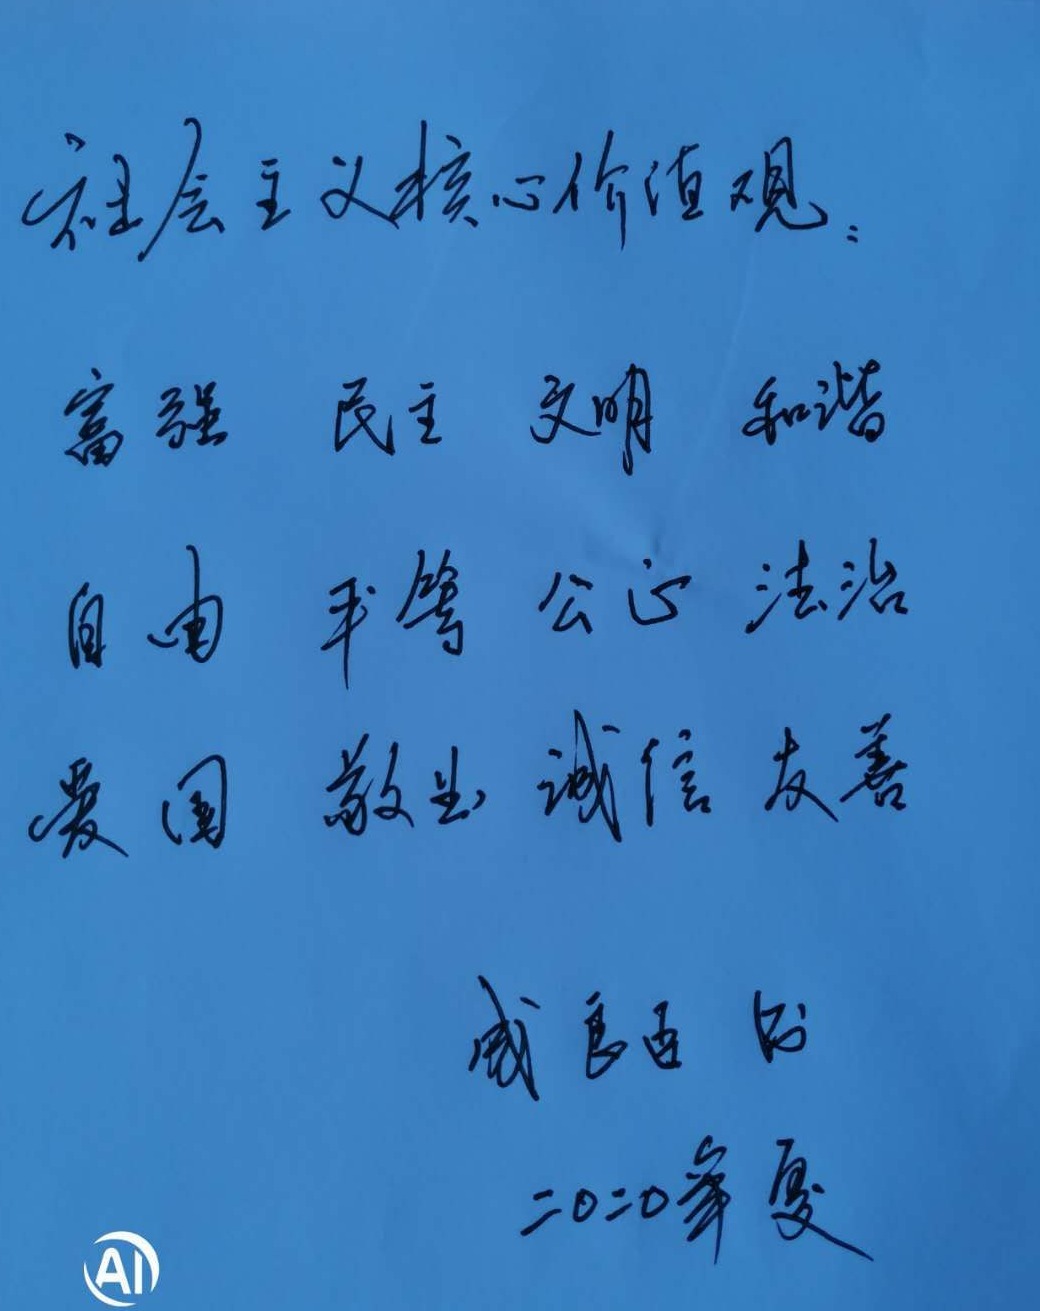 社会主义核心价值观:
富强 民主 文明 和谐
自由 平等 公正 法治
爱国 敬业 诚信 友善
良
二〇二〇年夏
AI